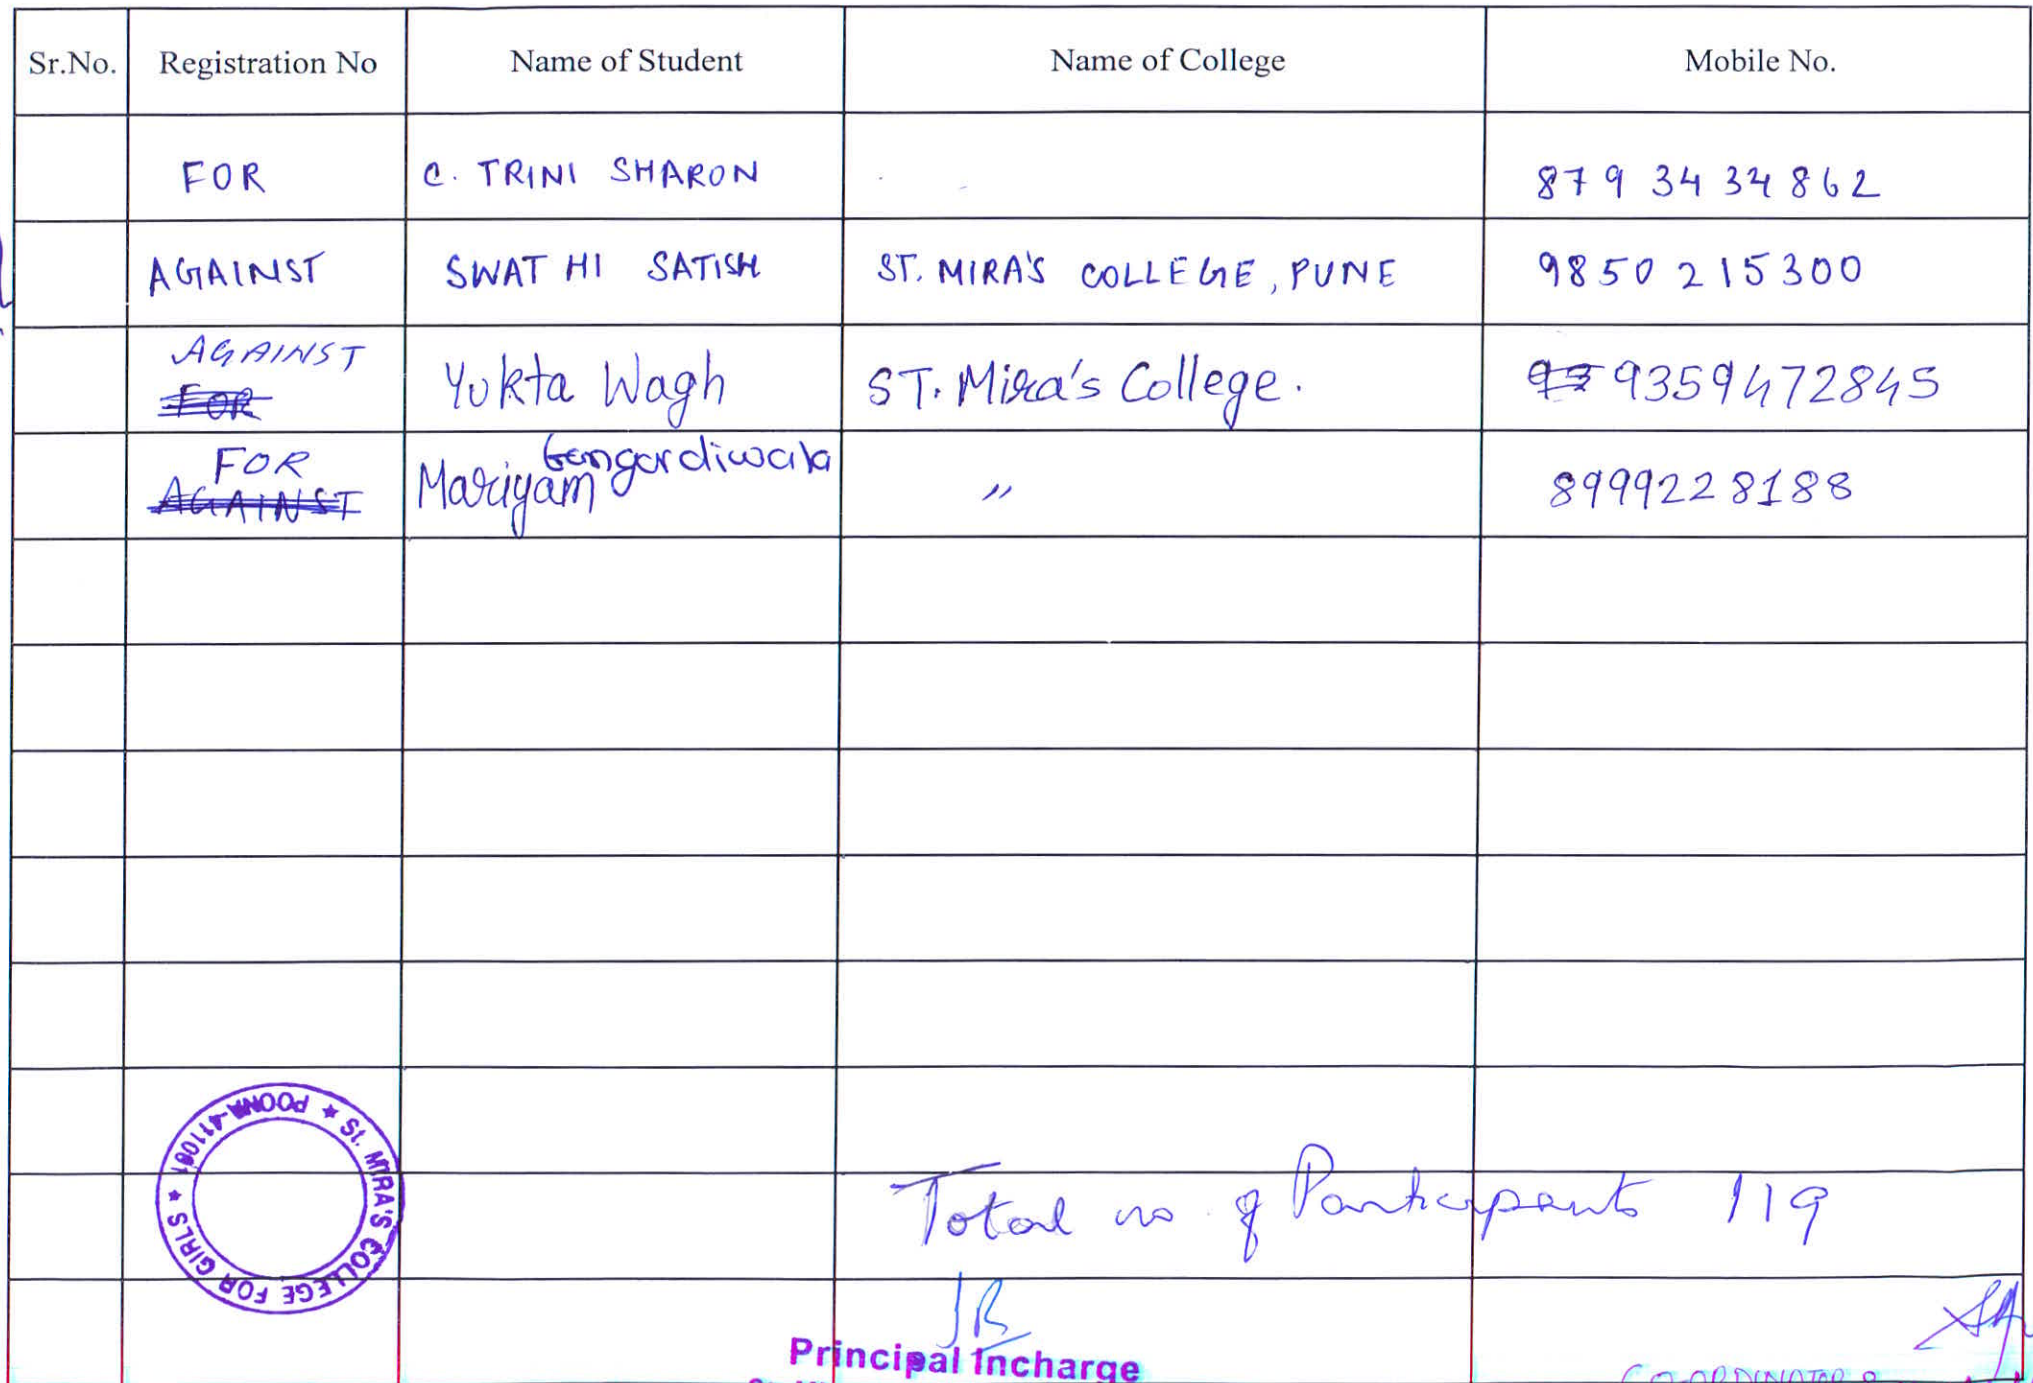 Sr.No. Registration No Name of Student Name of College Mobile No.
FOR C. TRINI SHARON 879 34 34862
AGAINST SWATHI SATISH ST. MIRA'S COLLEGE, PUNE 9850 215300
AGAINST
FOR Yukta Wagh ST. Mira's College. 9359472845
FOR Gangardiwala
AGAINST Mariyam 〃 8999228188
St. MIRA'S COLLEGE FOR GIRLS * POONA-411001 *
Total no. of Participants 119
Principal Incharge
CO-ORDINATOR